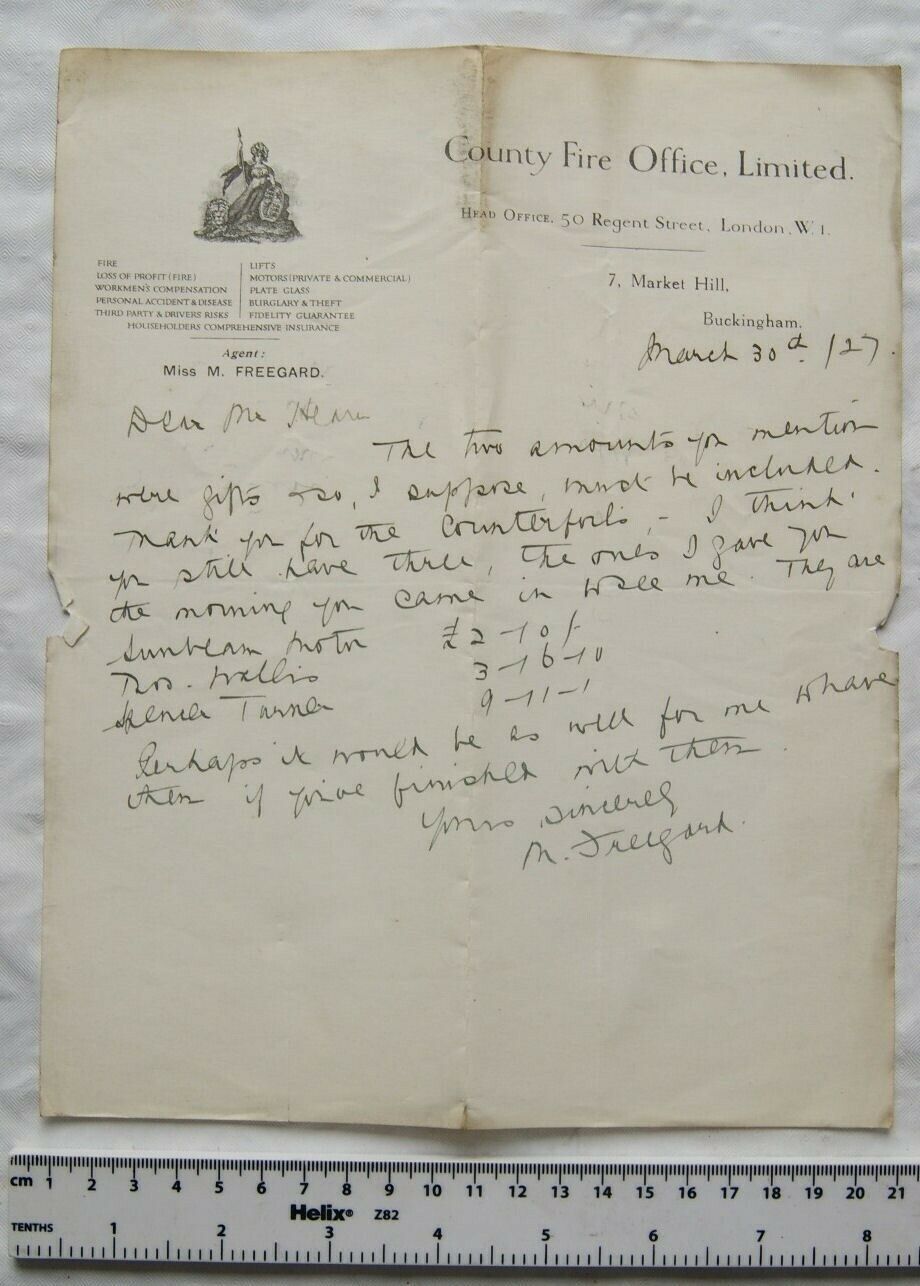 County Fire Office, Limited.
Head Office, 50 Regent Street, London, W. 1.
FIRE
LOSS OF PROFIT (FIRE)
WORKMEN'S COMPENSATION
PERSONAL ACCIDENT & DISEASE
THIRD PARTY & DRIVERS RISKS
LIFTS
MOTORS (PRIVATE & COMMERCIAL)
PLATE GLASS
BURGLARY & THEFT
FIDELITY GUARANTEE
HOUSEHOLDERS COMPREHENSIVE INSURANCE
Agent:
Miss M. FREEGARD.
7, Market Hill,
Buckingham.
March 30th /27.
Dear Mr Hearn
The two amounts you mention
were gifts & so, I suppose, must be included.
Thank you for the Counterfoils, – I think
you still have three, the ones I gave you
the morning you came in to see me. They are
Sunbeam Motor £2–10/–
Thos. Wallis 3–16–10
Spencer Turner 9–11–1
Perhaps it would be as well for me to have
them if you've finished with them.
Yours sincerely
M. Freegard.
cm 1 2 3 4 5 6 7 8 9 10 11 12 13 14 15 16 17 18 19 20 21
Helix® Z82
TENTHS 1 2 3 4 5 6 7 8